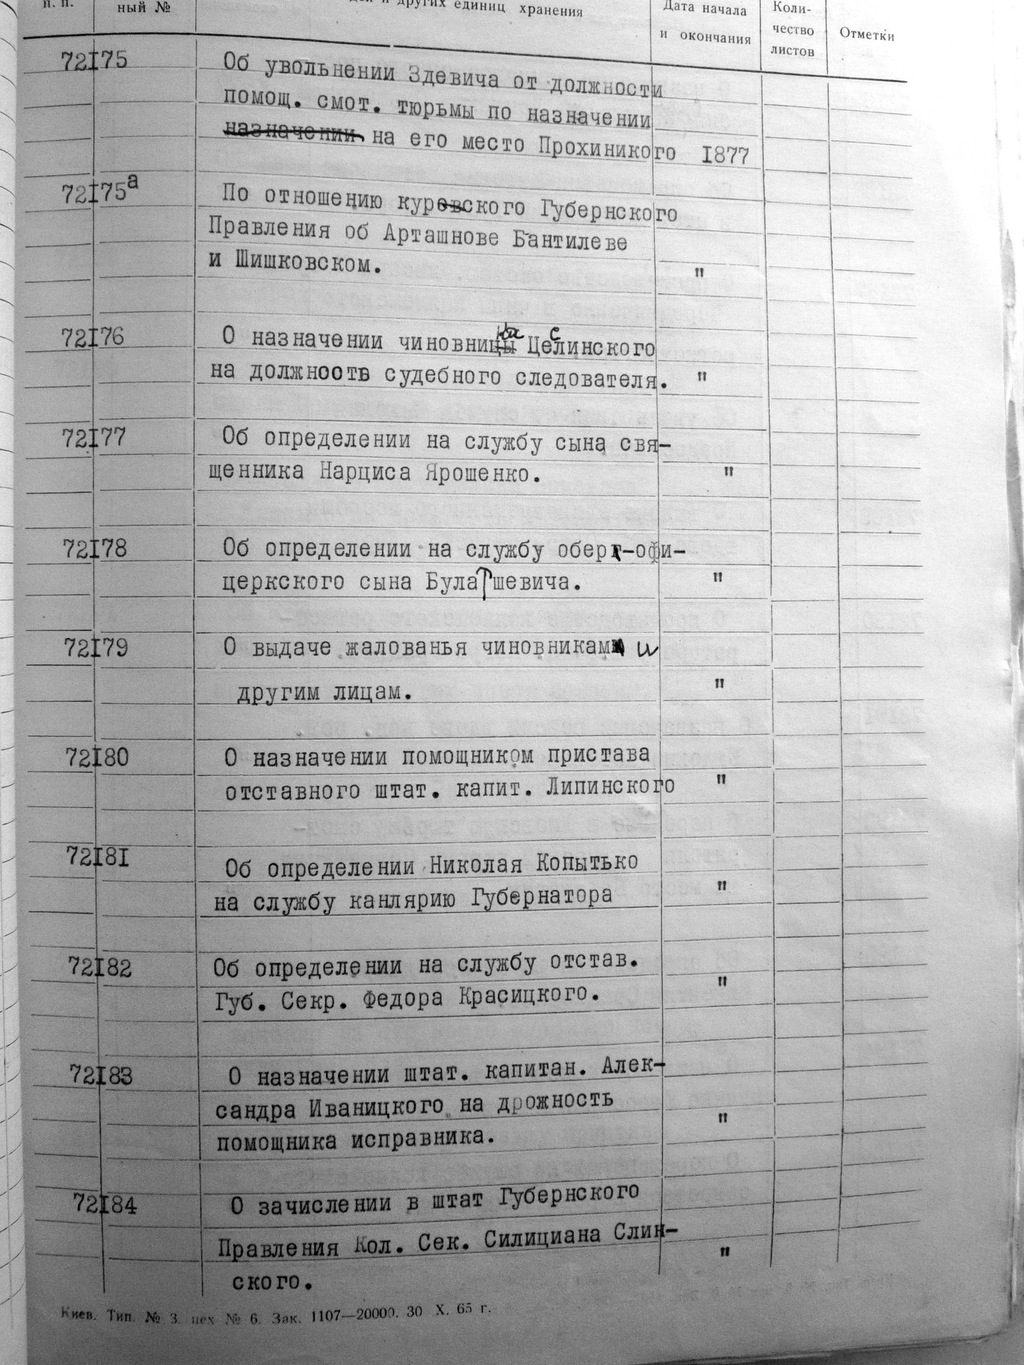 п. п.
ный №
других единиц хранения
Дата начала
и окончания
Коли-
чество
листов
Отметки
72175 Об увольнении Здевича от должности
помощ. смот. тюрьмы по назначении
назначении на его место Прохиникого 1877
72175а По отношению куровского Губернского
Правления об Арташнове Бантилеве
и Шишковском. "
72176 О назначении чиновницы ка Целинского с
на должноств судебного следователя. "
72177 Об определении на службу сына свя-
щенника Нарциса Ярошенко. "
72178 Об определении на службу обер-офи-
церкского сына Булатшевича. "
72179 О выдаче жалованья чиновникам и
другим лицам. "
72180 О назначении помощником пристава
отставного штат. капит. Липинского "
72181 Об определении Николая Копытько
на службу канлярию Губернатора "
72182 Об определении на службу отстав.
Губ. Секр. Федора Красицкого. "
72183 О назначении штат. капитан. Алек-
сандра Иваницкого на дрожность
помощника исправника. "
72184 О зачислении в штат Губернского
Правления Кол. Сек. Силициана Слин-
ского. "
Киев. Тип. № 3. цех № 6. Зак. 1107—20000. 30 X. 65 г.